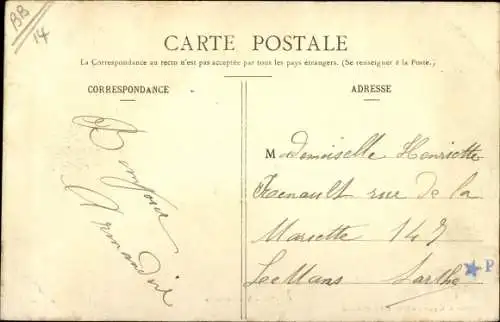 BB
14
CARTE POSTALE
La Correspondance au recto n'est pas acceptée par tous les pays étrangers. (Se renseigner à la Poste.)
CORRESPONDANCE
ADRESSE
Bonjour
Armandine
Mademoiselle Henriette
rue de la
Mariette 147
Le Mans Sarthe
P